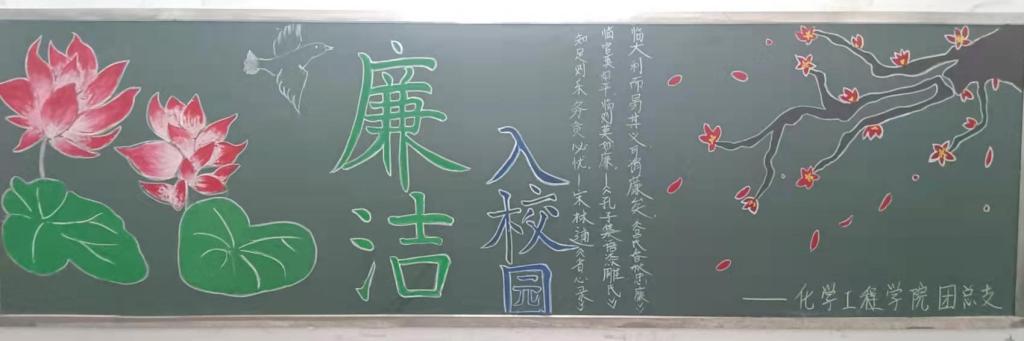 廉洁
入校园
临大利而易其义可谓廉矣、《吕氏春秋忠廉》
临官莫如平临财莫如廉—《孔子集语漆雕氏》
知足则乐 务贪必忧—宋林逋《省心录》
——化学工程学院团总支